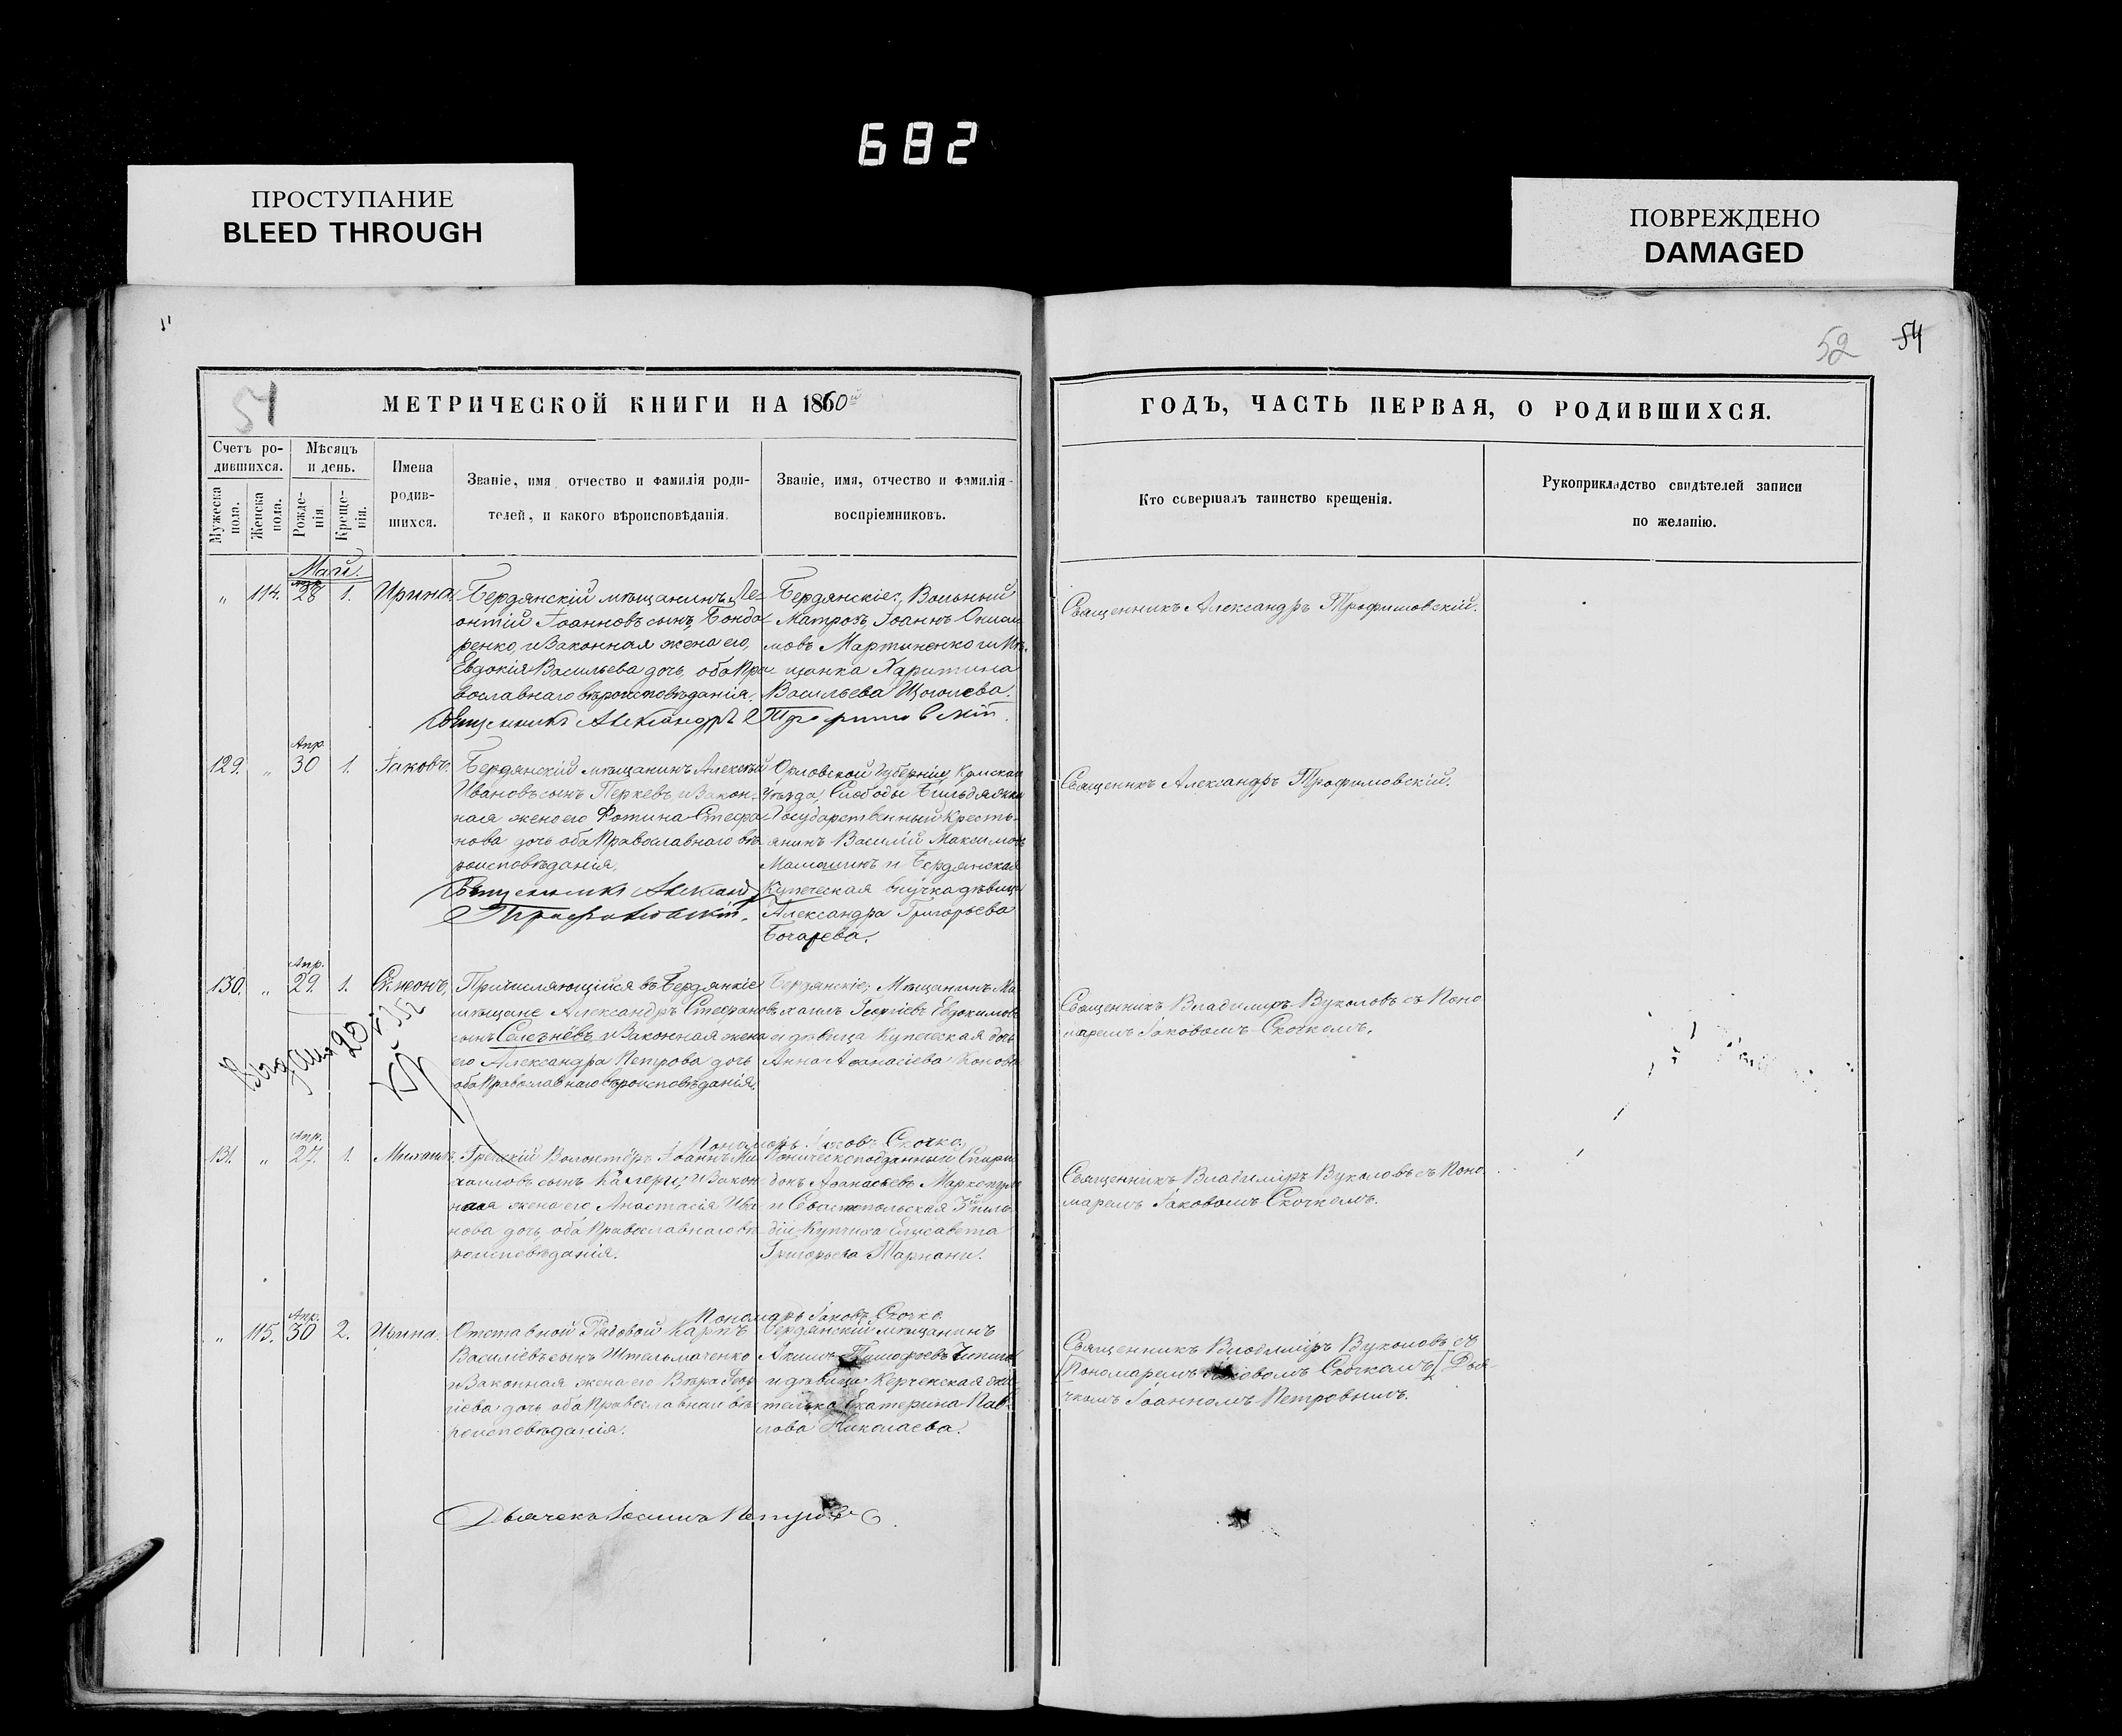 682
ПРОСТУПАНИЕ
BLEED THROUGH
ПОВРЕЖДЕНО
DAMAGED
52 54
51
МЕТРИЧЕСКОЙ КНИГИ НА 1860й
ГОДЪ, ЧАСТЬ ПЕРВАЯ, О РОДИВШИХСЯ.
Счетъ ро-
дившихся.
Мужеска пола.
Женска пола.
Мѣсяцъ
и день.
Рожде-
нія.
Креще-
нія.
Имена
родив-
шихся.
Званіе, имя отчество и фамилія роди-
телей, и какого вѣроисповѣданія.
Званіе, имя, отчество и фамилія
воспріемниковъ.
Кто совершалъ таинство крещенія.
Рукоприкладство свидѣтелей записи
по желанію.
Май.
„ 114. Апр. 28 1. Ирина.
Бердянскій мѣщанинъ Ле-
онтій Іоанновъ сынъ Бондо
ренко, и Законная жена его,
Евдокія Васильева дочь, оба Пра-
вославнаго вѣроисповѣданія.
Бердянскіе: Вольный
Матрозъ Іоаннъ
мовъ Мартиненко и Мѣ-
щанка Харитина
Васильева
Священникъ Александръ Трофимовскій.
Священникъ Александръ Трофимовскій.
129. „ Апр 30 1. Іаковъ.
Бердянскій мѣщанинъ Алексѣй
Ивановъ сынъ Перкевъ, и Закон-
ная жена его Фотина Стефа-
нова дочь оба Православнаго вѣ-
роисповѣданія.
Орловской Губерніи,
Уѣзда, Слободы
Государственный Кресть-
янинъ Василій Максимовъ
и Бердянская
Купеческая внучка дѣвица
Александра Григорьева
Бочарева.
Священникъ Александ
Трофимовскій.
Священикъ Александръ Трофимовскій.
130. „ Апр. 29. 1. Симеонъ,
Причисляющійся въ Бердянкіе
мѣщане Александръ Стефановъ
сынъ Селезнёвъ и Законная жена
его Александра Петрова дочь
оба Православнаго вѣроисповѣданія.
Бердянскіе; Мѣщанинъ Ми
хаилъ Георгіевъ Евдокимовъ
и дѣвица Купеческая дочь
Анна Аѳанасіева
Пономарь Іаковъ Скочко.
Священникъ Владиміръ Вуколовъ съ Поно
маремъ Іаковомъ Скочкомъ.
131. „ Апр. 27. 1. Михаилъ.
Греческій Волонтёръ Іоаннъ Ми
хаиловъ сынъ Калерги, и Закон
ная жена его Анастасія Ива
нова дочь, оба Православнаго вѣ
роисповѣданія.
Іоническоподданный Спири
донъ Аѳанасьевъ
и Севастопольская 3й гиль-
діи Купчиха Елисавета
Григорьева
Пономарь Іаковъ Скочко.
Священникъ Владиміръ Вуколовъ съ Поно
маремъ Іаковомъ Скочкомъ.
„ 115. Апр. 30 2. Ирина.
Отставной Рядовой Карпъ
Василіевъ сынъ Штельмаченко
и Законная жена его Вѣра Геор
гіева дочь оба Православнаго вѣ
роисповѣданія.
Бердянскій мѣщанинъ
Акимъ
и дѣвица Керченская жи
телька Екатерина Пав-
лова Николаева.
Священникъ Владиміръ Вуколовъ съ
[Пономаремъ Іаковомъ Скочкомъ] Дья-
чкомъ Іоанномъ Петровымъ.
Дьячекъ Іоаннъ Петровъ